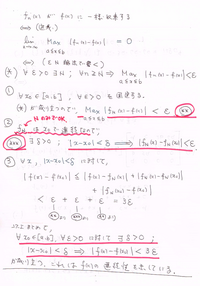 fₙ(x) が f(x) に一様収束する
⟺ (定義)
lim_{n→∞} Max_{a≦x≦b} |fₙ(x)-f(x)| = 0
⟺ (εN 論法で書く)
(*) ∀ε>0 ∃N ; ∀n≧N ⟹ Max_{a≦x≦b} |fₙ(x)-f(x)|<ε
① ∀x₀∈[a,b], ∀ε>0 を固定する。
(*) が成り立つので、Max_{a≦x≦b} |f_N(x)-f(x)| < ε (**)
② Nのみでok.
f_N は x₀ で連続なので、
(***) ∃δ>0 ; |x-x₀|<δ ⟹ |f_N(x)-f_N(x₀)|<ε
③ ∀x, |x-x₀|<δ に対して、
|f(x)-f(x₀)| ≦ |f(x)-f_N(x)|+|f_N(x)-f_N(x₀)|
+|f_N(x₀)-f(x₀)|
< ε + ε + ε = 3ε
(**)より (***)より (**)より
以上まとめて、
∀x₀∈[a,b], ∀ε>0 に対して ∃δ>0 ;
|x-x₀|<δ ⟹ |f(x)-f(x₀)|<3ε
が成り立つ。これは f(x) の連続性を示している。